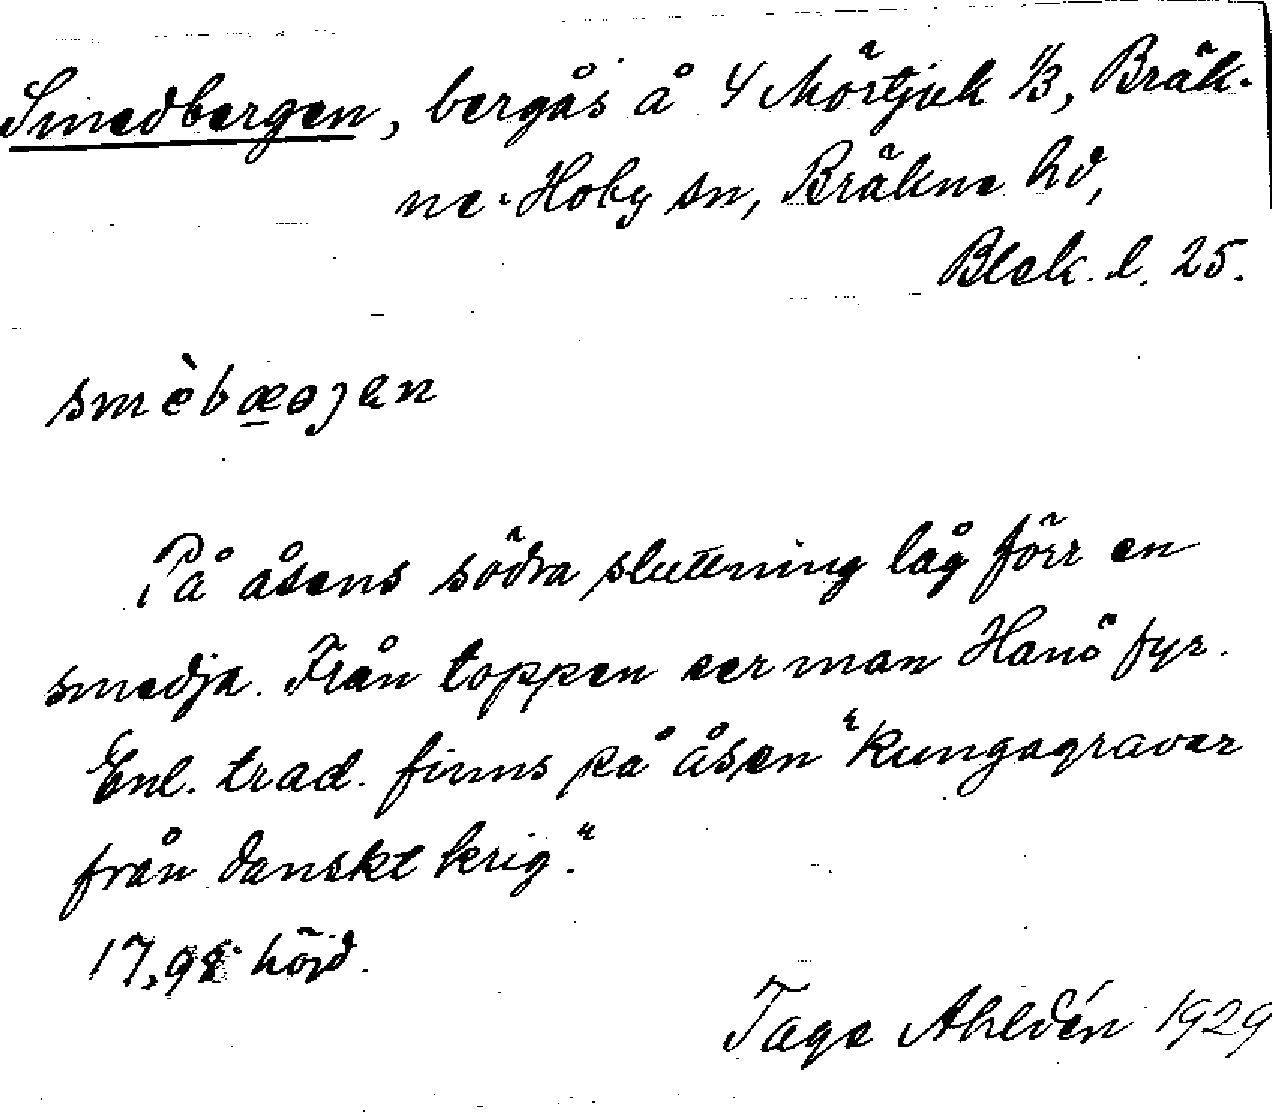 Smedbergen, bergås å 4 Mörtjuk 1/3, Bräk-
ne-Hoby sn, Bräkne hd,
Blek. l. 25.
smèbæojen
På åsens södra sluttning låg förr en
smedja. Från toppen ser man Hanö fyr.
Enl. trad. finns på åsen "kungagravar
från danskt krig."
17,98 höjd.
Tage Ahldén 1929